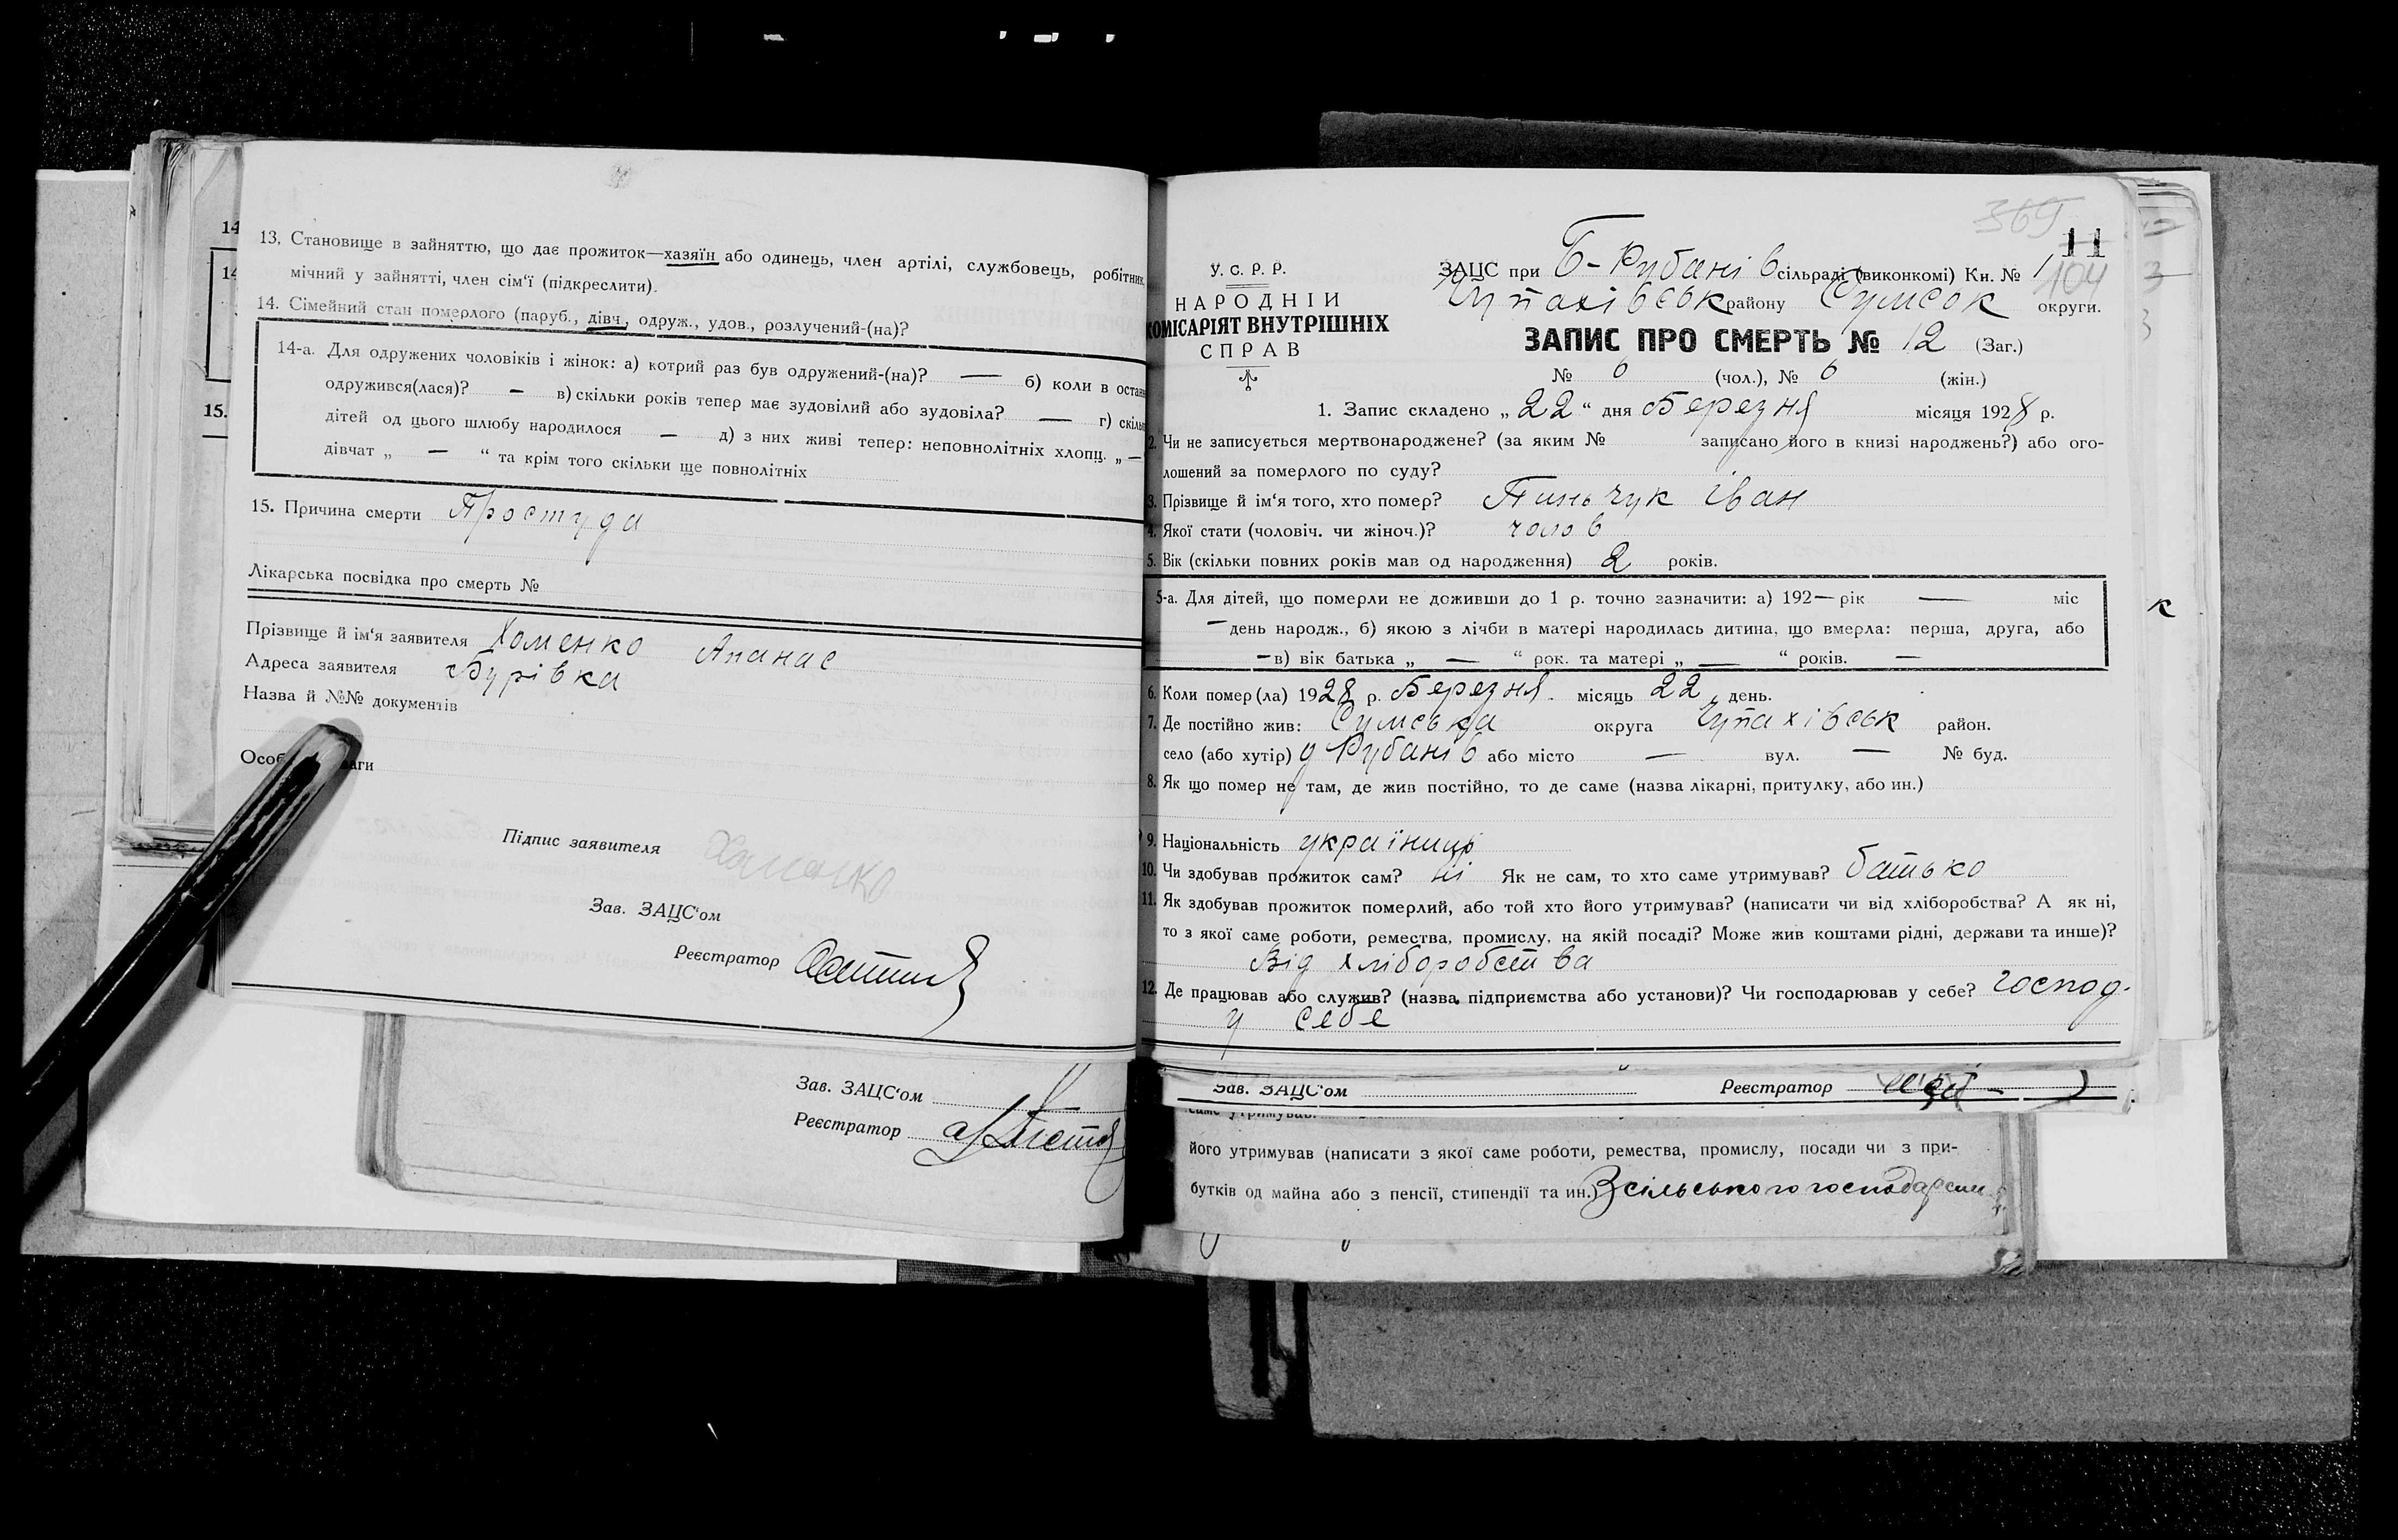 13. Становище в зайняттю, що дає прожиток—хазяїн або одинець, член артілі, службовець, робітник,
мічний у зайнятті, член сім'ї (підкреслити).
14. Сімейний стан померлого (паруб., дівч., одруж., удов., розлучений-(на)?
14-а. Для одружених чоловіків і жінок: а) котрий раз був одружений-(на)? — б) коли в остан
одружився(лася)? — в) скільки років тепер має зудовілий або зудовіла? — г) скільк
дітей од цього шлюбу народилося — д) з них живі тепер: неповнолітніх хлопц. „ —
дівчат „ — “ та крім того скільки ще повнолітніх
15. Причина смерти Простуда
Лікарська посвідка про смерть №
Прізвище й ім'я заявителя Хоменко Апанас
Адреса заявителя Бурівка
Назва й №№ документів
Особ ваги
Підпис заявителя Хоменко
Зав. ЗАЦС'ом
Реєстратор
Зав. ЗАЦС'ом
Реєстратор
14
14
15.
369
11
104
У. С. Р. Р.
НАРОДНІЙ
КОМІСАРІЯТ ВНУТРІШНІХ
СПРАВ
ЗАЦС при Б-Рубанів сільраді (виконкомі) Кн. № 1
Чупахівськ району Сумськ округи.
ЗАПИС ПРО СМЕРТЬ № 12 (Заг.)
№ 6 (чол.), № 6 (жін.)
1. Запис складено „ 22 “ дня Березня місяця 1928 р.
2. Чи не записується мертвонароджене? (за яким № записано його в книзі народжень?) або ого-
лошений за померлого по суду?
3. Прізвище й ім'я того, хто помер? Пиньчук Іван
4. Якої стати (чоловіч. чи жіноч.)? чолов
5. Вік (скільки повних років мав од народження) 2 років.
5-а. Для дітей, що померли не доживши до 1 р. точно зазначити: а) 192— рік — міс
— день народж., б) якою з лічби в матері народилась дитина, що вмерла: перша, друга, або
— в) вік батька „ — “ рок. та матері „ — “ років. —
6. Коли помер (ла) 1928 р. Березня місяць 22 день.
7. Де постійно жив: Сумська округа Чупахівськ район.
село (або хутір) у Рубанів або місто — вул. — № буд.
8. Як що помер не там, де жив постійно, то де саме (назва лікарні, притулку, або ин.)
9. Національність українць
10. Чи здобував прожиток сам? ні Як не сам, то хто саме утримував? батько
11. Як здобував прожиток померлий, або той хто його утримував? (написати чи від хліборобства? А як ні,
то з якої саме роботи, ремества, промислу, на якій посаді? Може жив коштами рідні, держави та инше)?
Від хліборобства
12. Де працював або служив? (назва підприємства або установи)? Чи господарював у себе? господ.
у себе
Зав. ЗАЦС'ом Реєстратор
саме утримував.
його утримував (написати з якої саме роботи, ремества, промислу, посади чи з при-
бутків од майна або з пенсії, стипендії та ин.) З сільського господарства
к